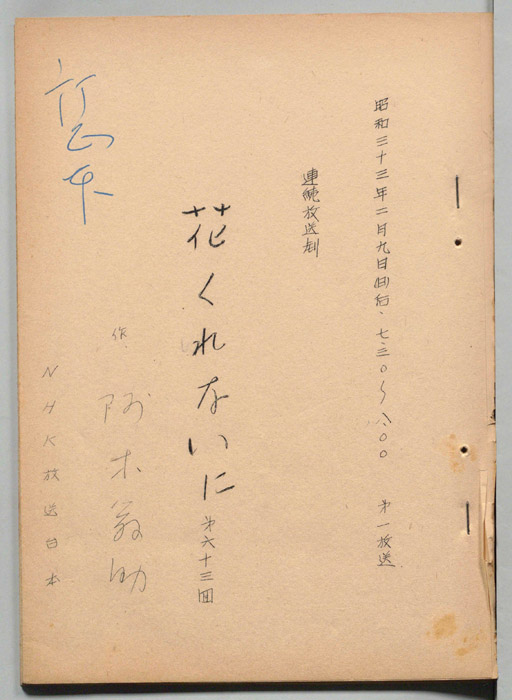 昭和三十三年二月九日(日)后、七三〇〜八、〇〇 第一放送
連続放送劇
花くれないに 第六十三回
作 阿木翁助
NHK放送台本